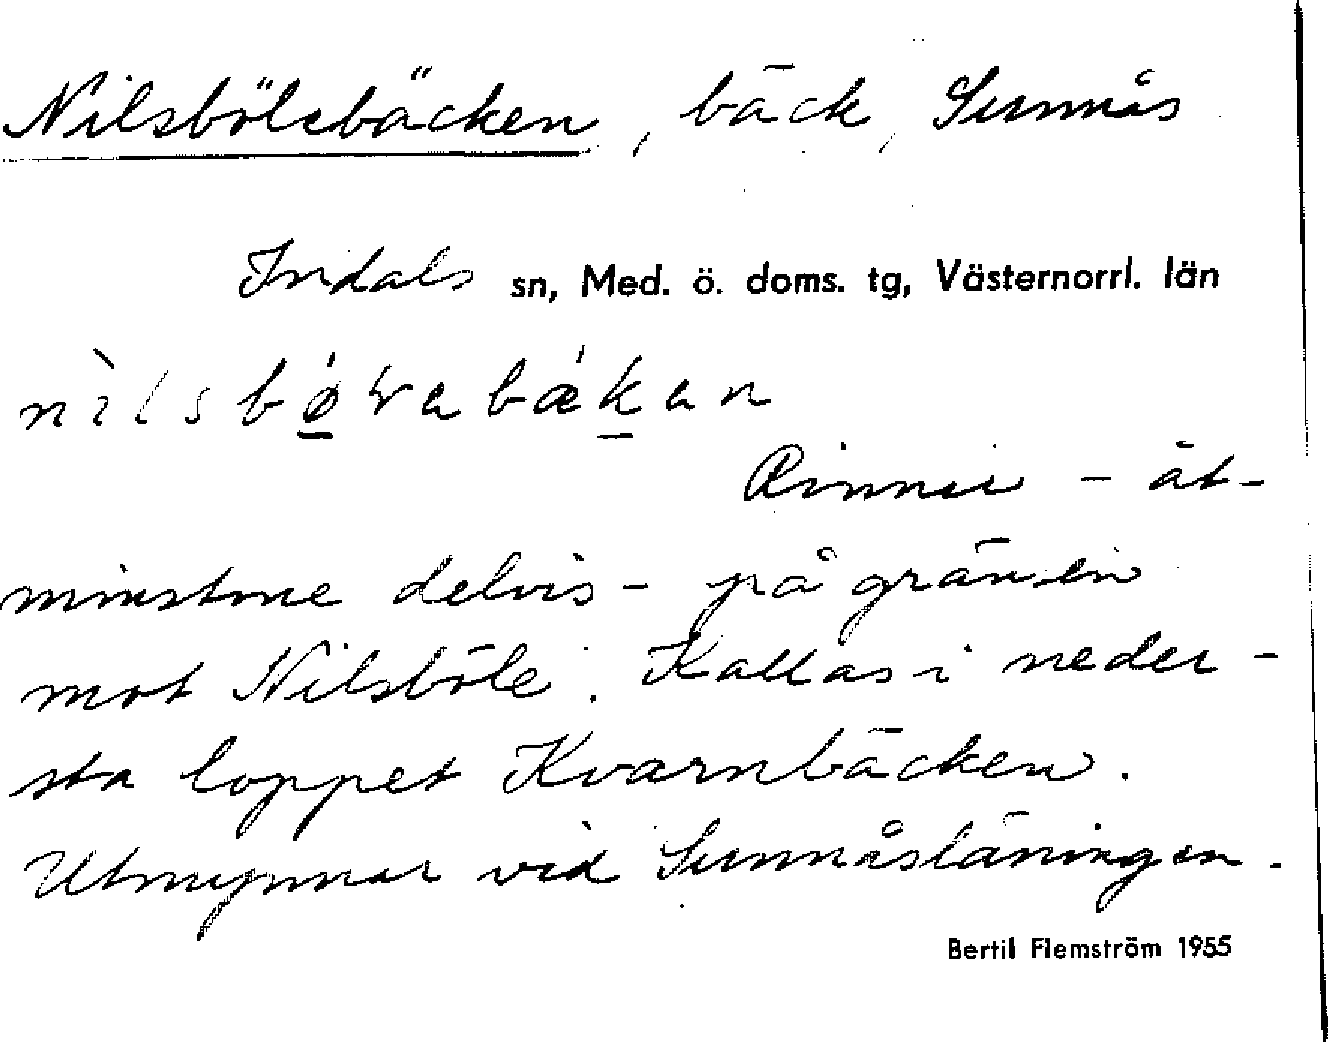 Nilsbölebäcken, bäck, Sunnås
Indals sn, Med. ö. doms. tg, Västernorrl. län
Rinner – åt-
minstone delvis – på gränsen
mot Nilsböle. Kallas i neder-
sta loppet Kvarnbäcken.
Utmynnar vid Sunnåsläningen.
Bertil Flemström 1955